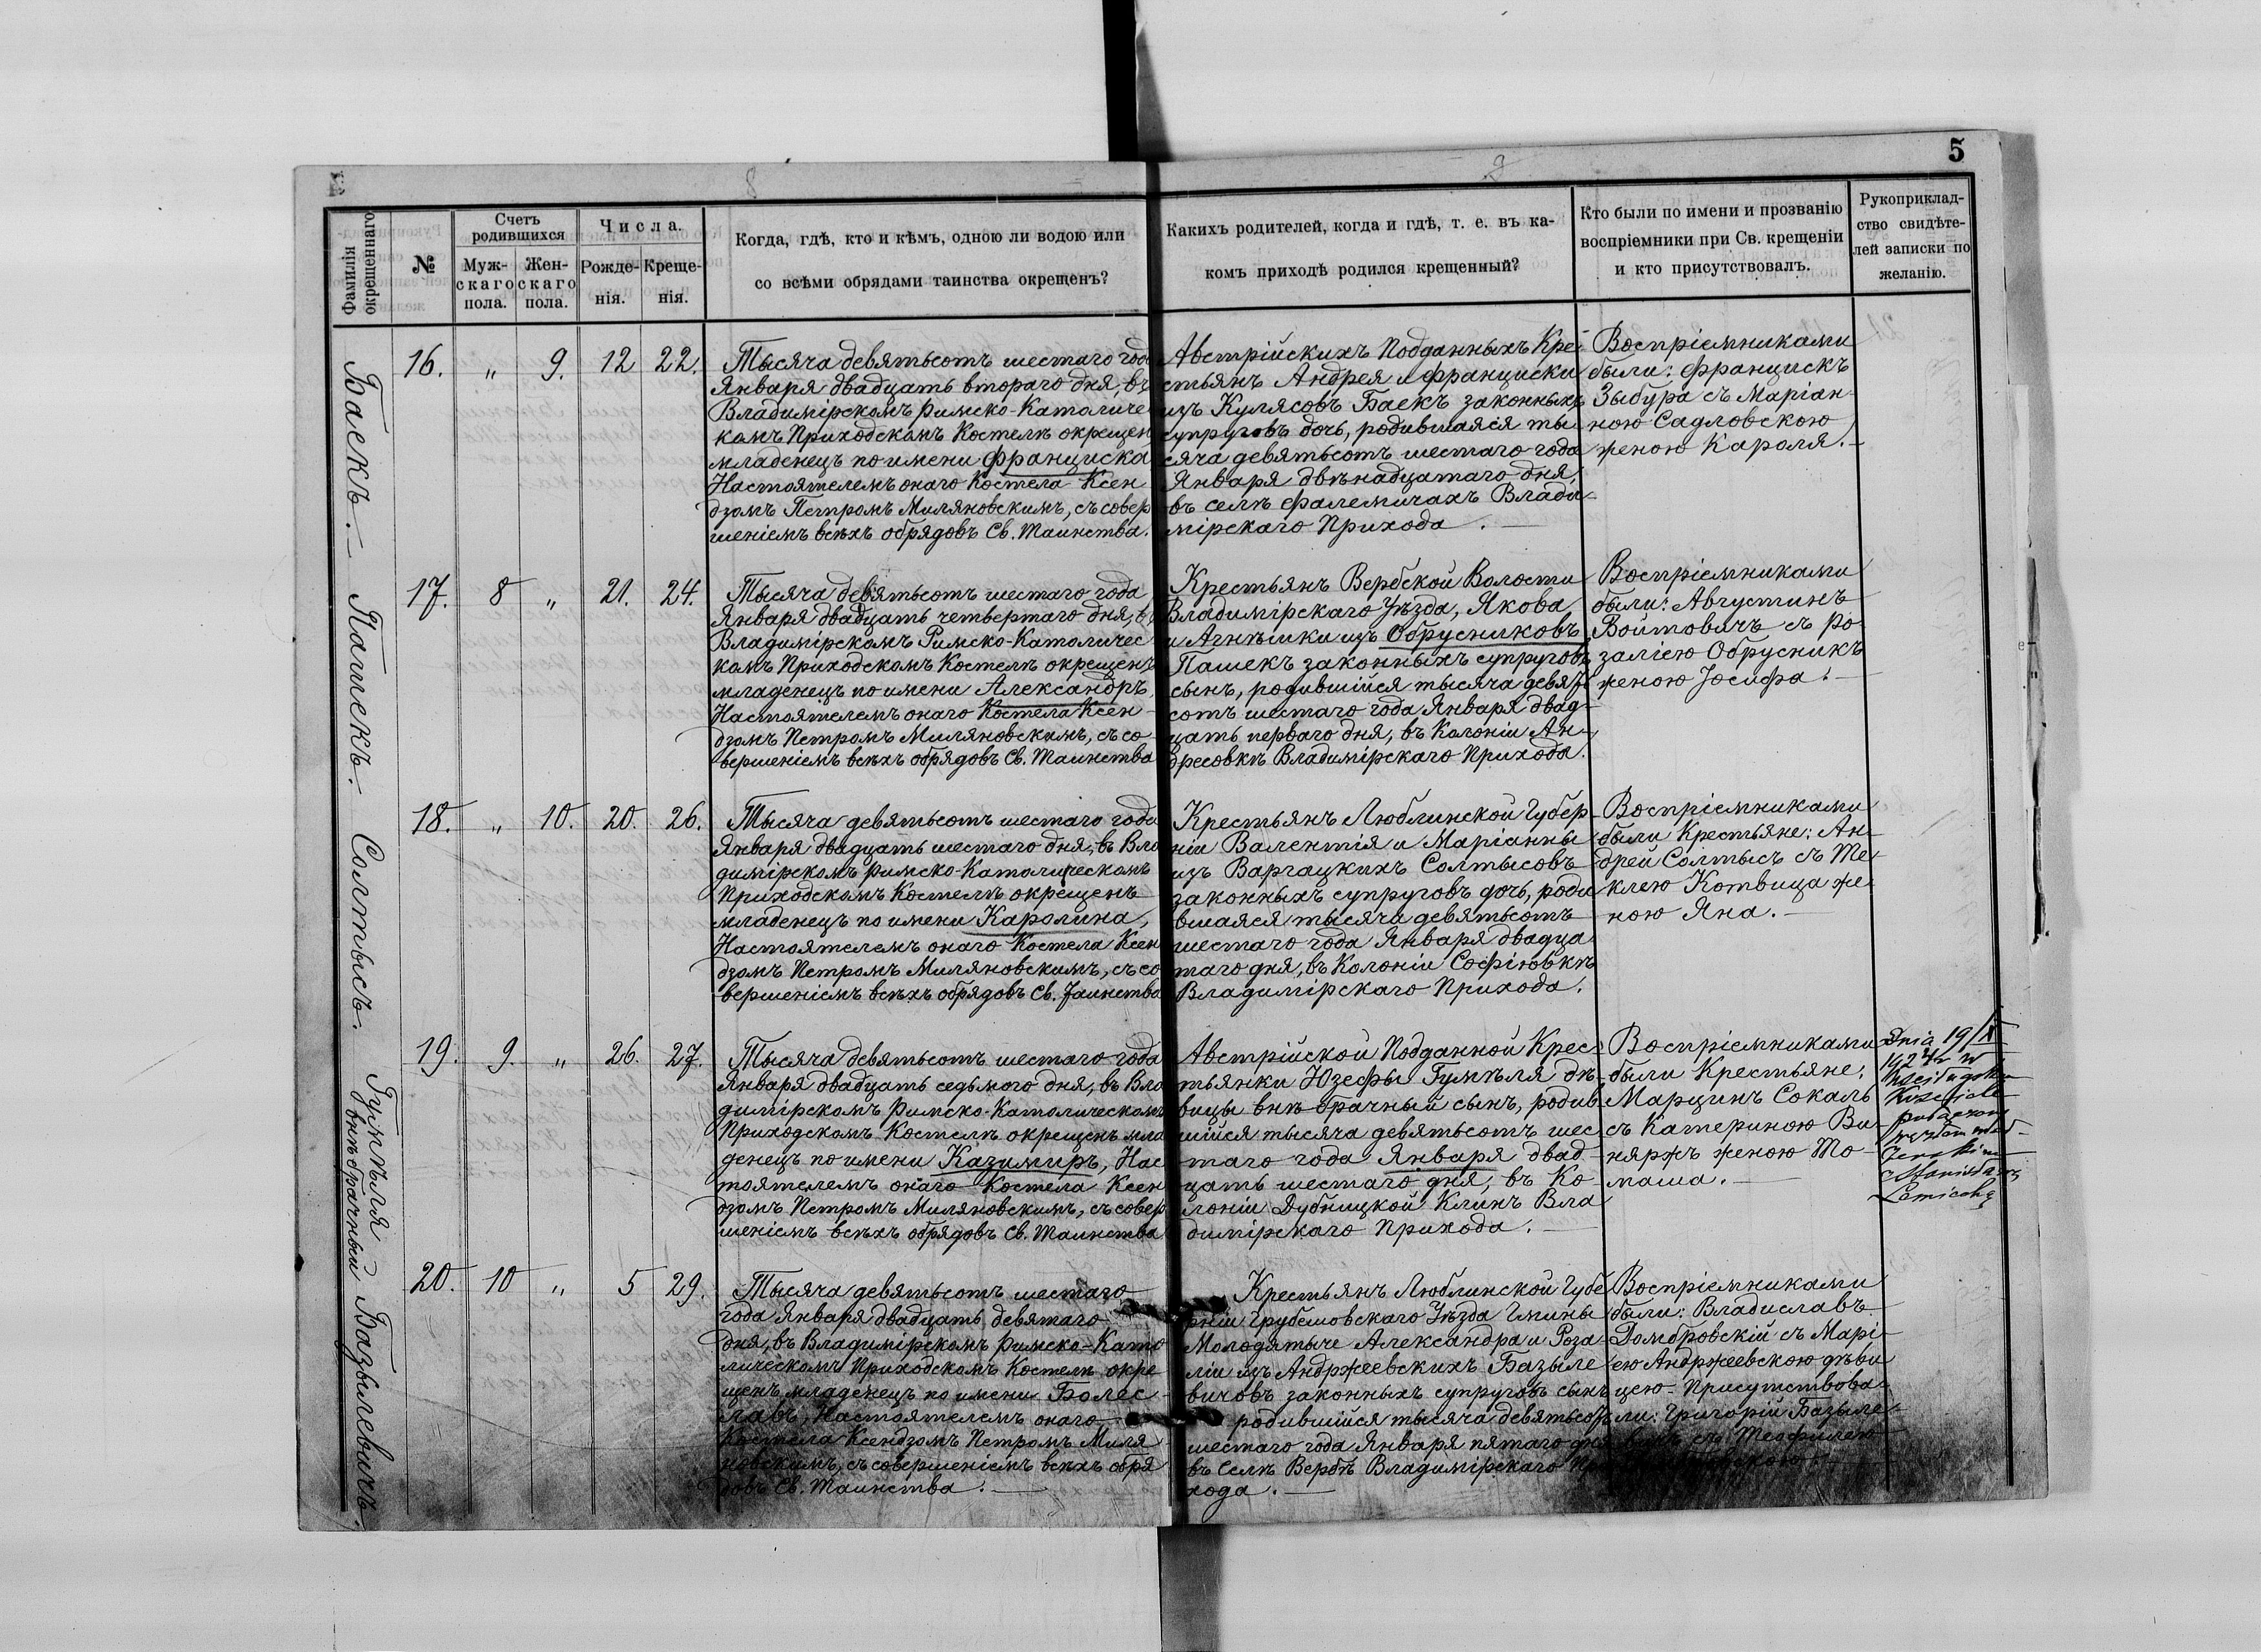 8
9
5
Фамилія окрещеннаго.
№
Счетъ родившихся
Муж-скаго пола.
Жен-скаго пола.
Числа.
Рожде-нія.
Креще-нія.
Когда, гдѣ, кто и кѣмъ, одною ли водою или
со всѣми обрядами таинства окрещенъ?
Какихъ родителей, когда и гдѣ, т. е. въ ка-
комъ приходѣ родился крещенный?
Кто были по имени и прозванію
воспріемники при Св. крещеніи
и кто присутствовалъ.
Рукоприклад-
ство свидѣте-
лей записки по
желанію.
Баекъ.
16. " 9. 12 22.
Тысяча девятьсотъ шестаго года
Января двадцать втораго дня, въ
Владимірскомъ Римско-Католичес
комъ Приходскомъ Костелѣ окрещен
младенецъ по имени Франциска
Настоятелемъ онаго Костела Ксен
дзомъ Петромъ Миляновскимъ, съ совер
шеніемъ всѣхъ обрядовъ Св. Таинства.
Австрійскихъ Подданныхъ Кре-
стьянъ Андрея и Франциски
изъ Кулясовъ Баекъ законныхъ
супруговъ дочь, родившаяся ты
сяча девятьсотъ шестаго года
Января двѣнадцатаго дня,
въ селѣ Фалемичахъ Влади-
мірскаго Прихода.
Воспріемниками
были: Францискъ
Зыбура съ Маріан-
ною Садловскою
женою Кароля.
Пашекъ.
17. 8 " 21. 24.
Тысяча девятьсотъ шестаго года
Января двадцать четвертаго дня, въ
Владимірскомъ Римско-Католичес
комъ Приходскомъ Костелѣ окрещенъ
младенецъ по имени Александръ,
Настоятелемъ онаго Костела Ксен-
дзомъ Петромъ Миляновскимъ, съ со-
вершеніемъ всѣхъ обрядовъ Св. Таинства
Крестьянъ Вербской Волости
Владимірскаго Уѣзда, Якова
и Агнѣшки изъ Обрусниковъ
Пашекъ законныхъ супруговъ
сынъ, родившійся тысяча девять
сотъ шестаго года Января двад-
цать перваго дня, въ Колоніи Ан-
дресовкѣ Владимірскаго Прихода.
Воспріемниками
были: Августинъ
Войтовичъ съ Ро-
заліею Обрусникъ
женою Іосифа.
Солтысъ.
18. " 10. 20. 26.
Тысяча девятьсотъ шестаго года
Января двадцать шестаго дня, въ Вла
димірскомъ Римско-Католическомъ
Приходскомъ Костелѣ окрещенъ
младенецъ по имени Каролина,
Настоятелемъ онаго Костела Ксен
дзомъ Петромъ Миляновскимъ, съ со
вершеніемъ всѣхъ обрядовъ Св. Таинства
Крестьянъ Люблинской Губер-
ніи Валентія и Маріанны
изъ Варгацкихъ Солтысовъ
законныхъ супруговъ дочь, роди
вшаяся тысяча девятьсотъ
шестаго года Января двадца
таго дня, въ Колоніи Софіювкѣ
Владимірскаго Прихода.
Воспріемниками
были Крестьяне: Ан-
дрей Солтысъ съ Те-
клею Котвица же-
ною Яна.
Гумѣля
внѣ брачный
19. 9. " 26. 27.
Тысяча девятьсотъ шестаго года
Января двадцать седьмого дня, въ Вла
димірскомъ Римско-Католическомъ
Приходскомъ Костелѣ окрещенъ мла
денецъ по имени Казимиръ, Нас
тоятелемъ онаго Костела Ксен
дзомъ Петромъ Миляновскимъ, съ совер
шеніемъ всѣхъ обрядовъ Св. Таинства
Австрійской Подданной Крес-
тьянки Юзефы Гумѣля дѣ-
вицы внѣ брачный сынъ, родив-
шійся тысяча девятьсотъ шес-
таго года Января двад-
цать шестаго дня, въ Ко
лоніи Дубницкой Клинъ Вла
димірскаго Прихода.
Воспріемниками
были Крестьяне:
Марцинъ Сокалъ
съ Катериною Ви-
няржъ женою То-
маша.
Dnia 19/X
Kościele
Базилевичъ.
20. 10 " 5 29.
Тысяча девятьсотъ шестаго
года Января двадцать девятаго
дня, въ Владимірскомъ Римско-Като
лическомъ Приходскомъ Костелѣ окре
щенъ младенецъ по имени Болес-
лавъ, Настоятелемъ онаго
Костела Ксендзомъ Петромъ Миля
новскимъ, съ совершеніемъ всѣхъ обря
довъ Св. Таинства.
Крестьянъ Люблинской Губе
рніи Грубешовскаго Уѣзда Гмины
Молодятыче Александра и Роза-
ліи изъ Андржеевскихъ Базыле
вичовъ законныхъ супруговъ сынъ
родившійся тысяча девятьсотъ
шестаго года Января пятаго дня
въ Селѣ Вербѣ Владимірскаго При
хода.
Воспріемниками
были: Владиславъ
Домбровскій съ Марі-
ею Андржеевскою дѣви
цею. Присутствова-
ли: Григорій Базыле-
вичъ съ Теофилею